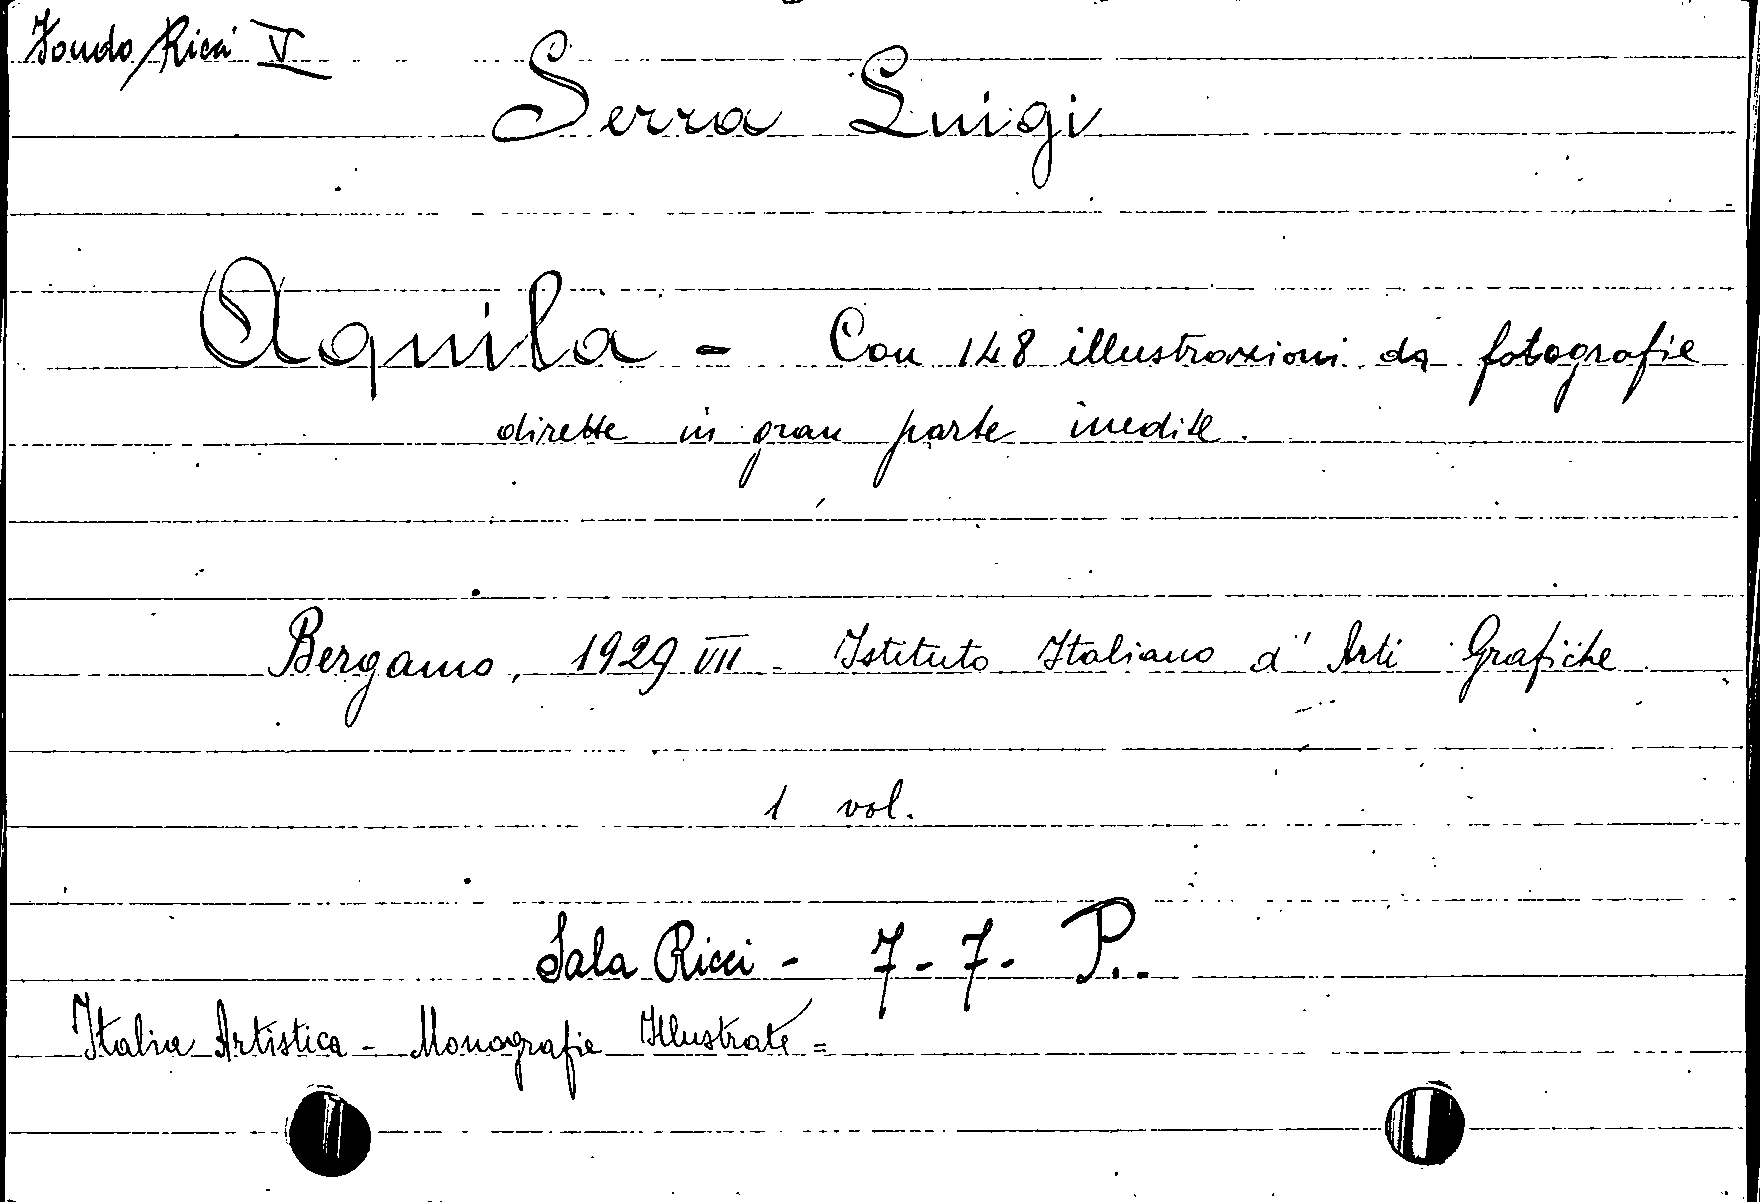 Fondo Ricci V
Serra Luigi
Aquila - Con 148 illustrazioni da fotografie
dirette in gran parte inedite.
Bergamo, 1929 VII - Istituto Italiano d'Arti Grafiche
1 vol.
Sala Ricci - 7 - 7 - P..
Italia Artistica - Monografie Illustrate =